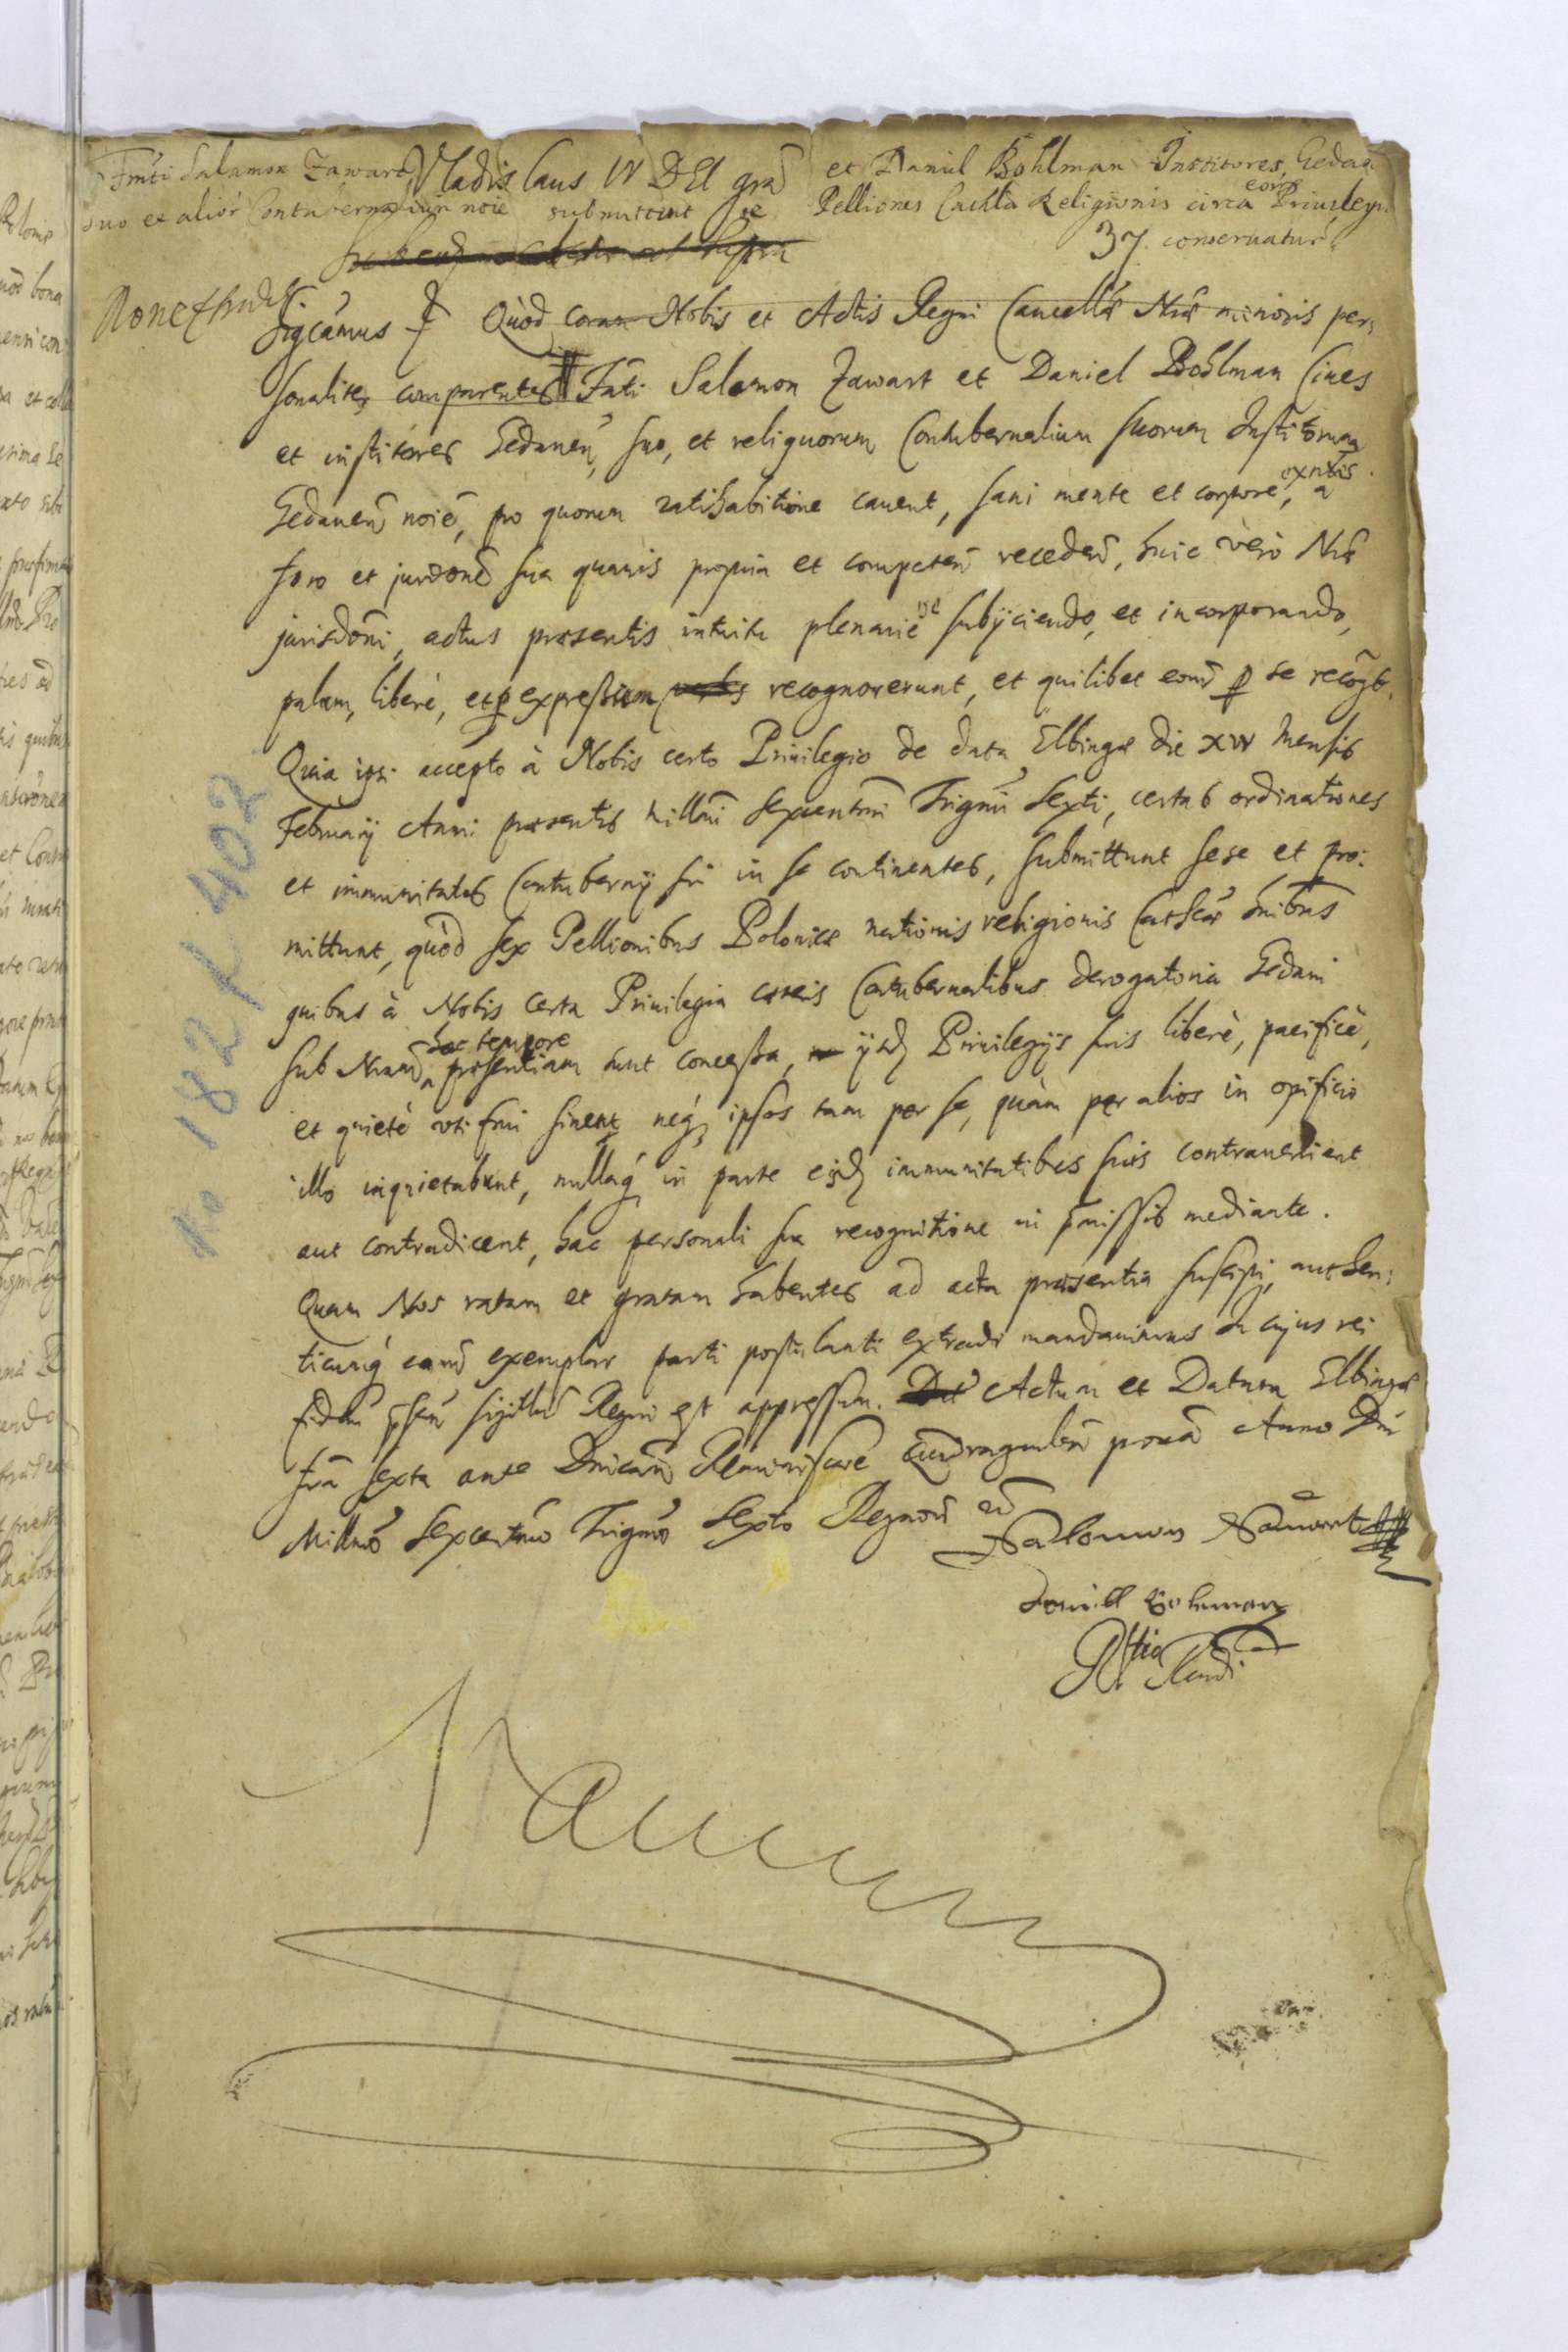 Fmti Salamon Zawart, Vladislaus IV DEI gra et Daniel Bohlman Institores Gedan
suo et alior Contubernalium noie submittunt se Pelliones Cathca Religionis circa eor Priuileg.
37. conseruatur
Sigcamus Quòd coram Nobis et Actis Regni Cancellar Nrae minoris per:
sonaliter comparentes Fati Salomon Zawart et Daniel Bohlman Ciues
et institores Gedanen, suo, et reliquorum Contubernalium suorum Institorum
Gedanen noie, pro quorum ratihabitione cauent, sani mente et corpore exntes, a
foro et jurdone sua quauis propria et competen receden, huic vero Nrae
jurisdoni, actus praesentis intuitu plenariè se subijciendo, et incorporando,
palam, liberè, et p expressum recognouerunt, et quilibet eoru p se recogt.
Quia ipsi accepto à Nobis certo Priuilegio de data Elbingae die XIV Mensis
February Anni praesentis millmi sexcentmi Trigmi Sexti, certas ordinationes
et immunitates Contuberny sui in se continentes, submittunt sese et pro:
mittunt, quòd sex Pellionibus Polonicae nationis religionis Cathcae omnibus
quibus à Nobis certa Priuilegia caeteris Contubernalibus derogatoria Gedani
sub Nram hoc tempore praesentiam sunt concessa, ijsd Priuilegijs suis liberè, pacificè,
et quietè uti frui sinent neq ipsos tam per se, quàm per alios in opificio
illo inquietabunt, nullaq in parte eisd immunitatibus suis contrauenient
aut contradicent, hac personali sua recognitione in pmissis mediante.
Quam Nos ratam et gratam habentes ad acta praesentia suscipi, authen:
ticumq eand exemplar parti postulanti extradi mandauimus In cujus rei
fidem psen sigillu Regni est appressum. Actum et Datum Elbingae
fra sexta ante Dnicam Reminiscere Quadragesalem proxa Anno Dni
Millmo Sexcentmo Trigmo Sexto Regnor
Salomon Sauart
Daniell Bohman
No 182 k 402